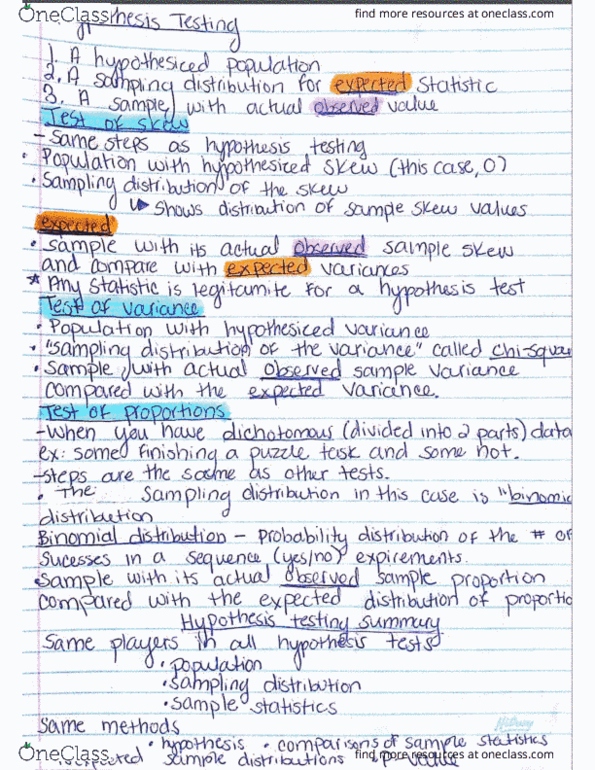 OneClass
find more resources at oneclass.com
Hypothesis Testing
1. A hypothesiced population
2. A sampling distribution for expected statistic
3. A sample, with actual observed value
Test of skew
- Same steps as hypothesis testing
• Population with hypothesiced skew (this case, 0)
• Sampling distribution of the skew
↳ Shows distribution of sample skew values
expected
• sample with its actual observed sample skew
and compare with expected variances
* Any statistic is legitamite for a hypothesis test
Test of variance
• Population with hypothesiced variance
• "sampling distribution of the variance" called chi-squar
• Sample, with actual observed sample variance
compared with the expected variance.
Test of proportions
- When you have dichotomous (divided into 2 parts) data
ex: some finishing a puzzle task and some not.
- steps are the same as other tests.
• The sampling distribution in this case is "binomic
distribution
Binomial distribution - probability distribution of the # of
sucesses in a sequence (yes/no) expirements.
• Sample with its actual observed sample proportion
compared with the expected distribution of proportio
Hypothesis testing summary
Same players in all hypothesis tests
• population
• sampling distribution
• sample statistics
Same methods
• hypothesis • comparisons of sample statistics
expected sample distributions P value
OneClass
find more resources at oneclass.com